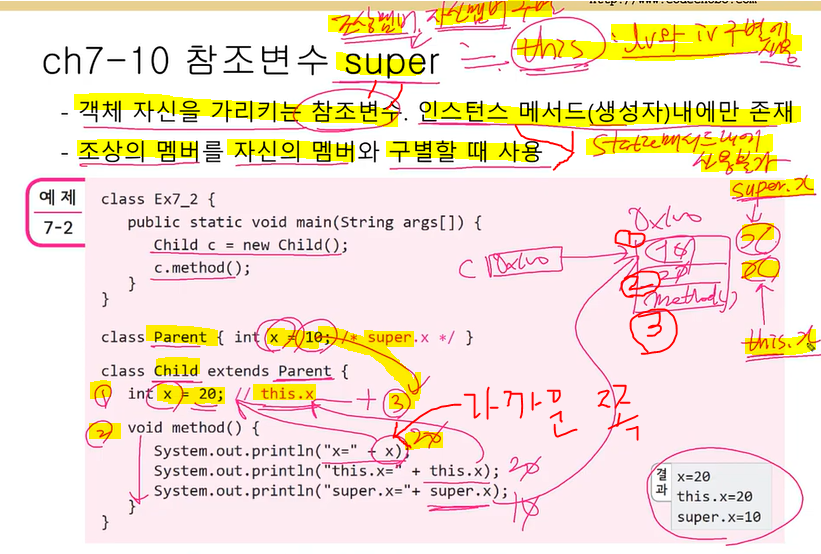 조상멤버, 자신멤버 구별
ch7-10 참조변수 super ≒ this : lv와 iv 구별에 사용
- 객체 자신을 가리키는 참조변수. 인스턴스 메서드(생성자)내에만 존재
- 조상의 멤버를 자신의 멤버와 구별할 때 사용
static메서드내에
사용불가
super.x
예제
7-2
class Ex7_2 {
public static void main(String args[]) {
Child c = new Child();
c.method();
}
}
0x100
c 0x100
1 10
2 20
method()
3
this.x
class Parent { int x = 10; /* super.x */ }
class Child extends Parent {
① int x = 20; // this.x + ③ 가까운 쪽
② void method() {
20
System.out.println("x=" + x);
System.out.println("this.x=" + this.x); 20
System.out.println("super.x="+ super.x); 10
}
}
결과
x=20
this.x=20
super.x=10